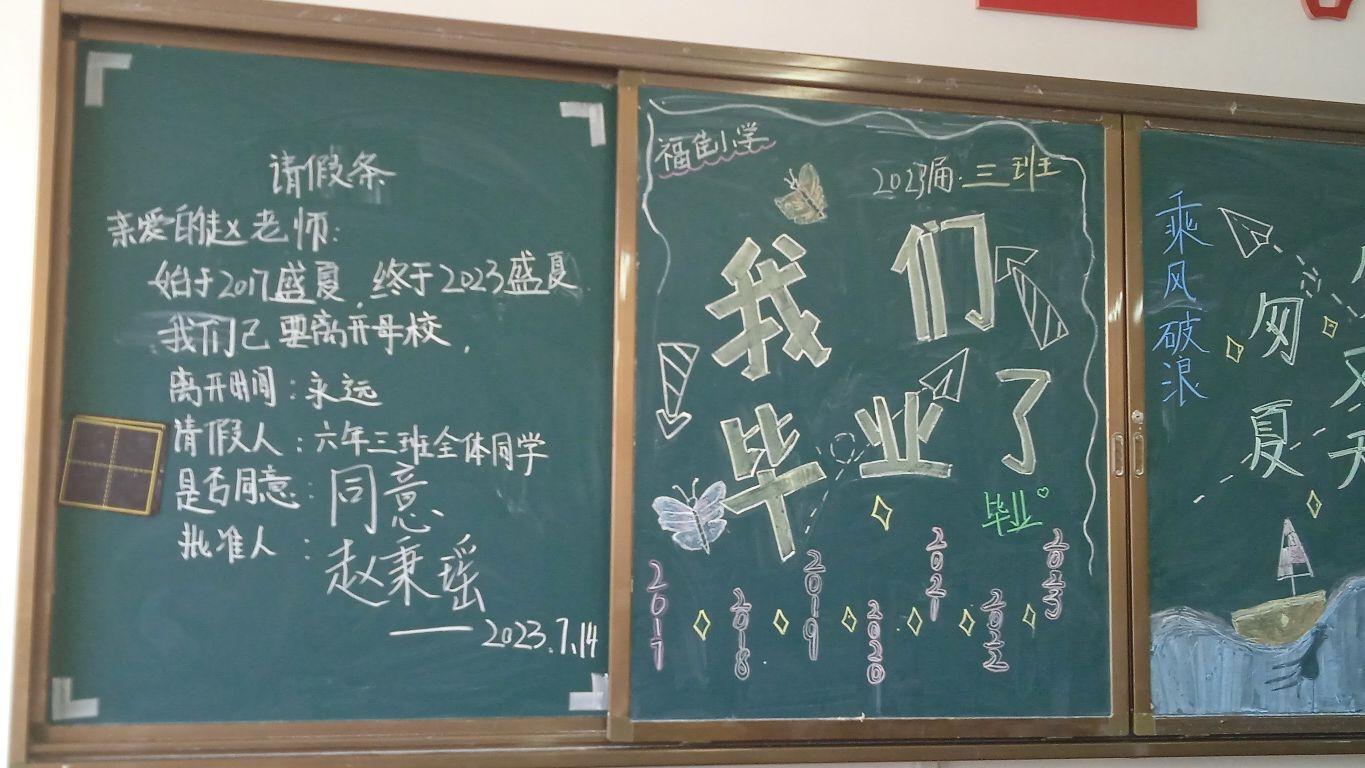 请假条
亲爱的赵老师：
始于2017盛夏，终于2023盛夏
我们已要离开母校，
离开时间：永远
请假人：六年三班全体同学
是否同意：同意
批准人：赵秉瑶
——2023.7.14
福佳小学
2023届·三班
我们
毕业了
毕业
2017
2018
2019
2020
2021
2022
2023
乘风破浪
匆
夏
又